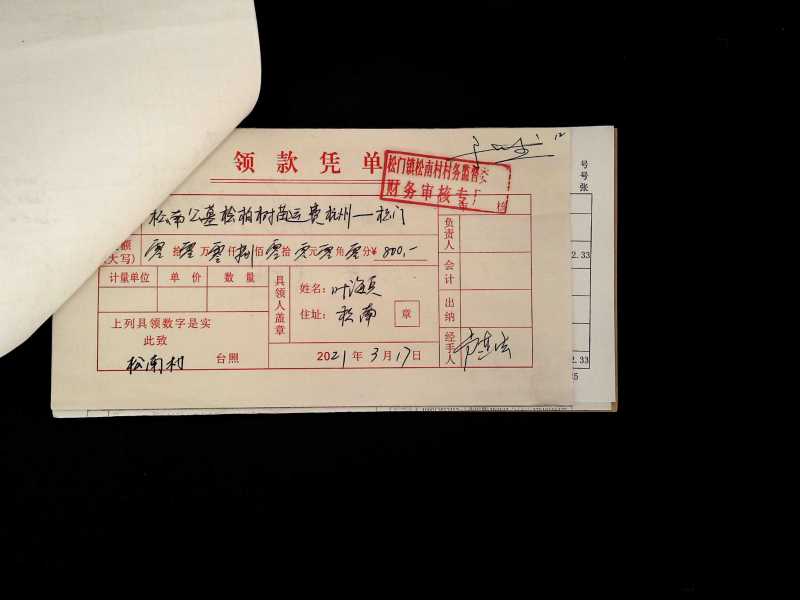 领款凭单
松门镇松南村村务监督委
财务审核专
松南公墓桧柏树苗运费杭州—松门
额
大写)
零拾零万零仟捌佰零拾零元零角零分¥800.-
计量单位 单价 数量
上列具领数字是实
此致
松南村 台照
具领人盖章
姓名:叶海
住址:松南 章
2021年3月17日
审 核
负责人
会计
出纳
经手人
号
号
张
2.33
2.33